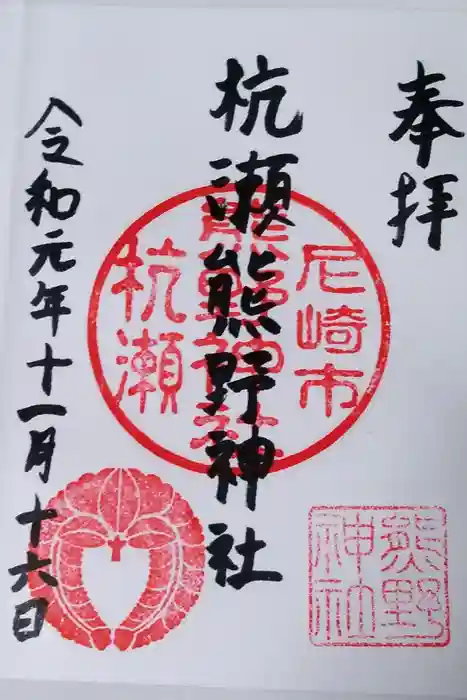 奉拝
杭瀬熊野神社
令和元年十一月十六日
尼崎市
熊野神社
杭瀬
熊野
神社